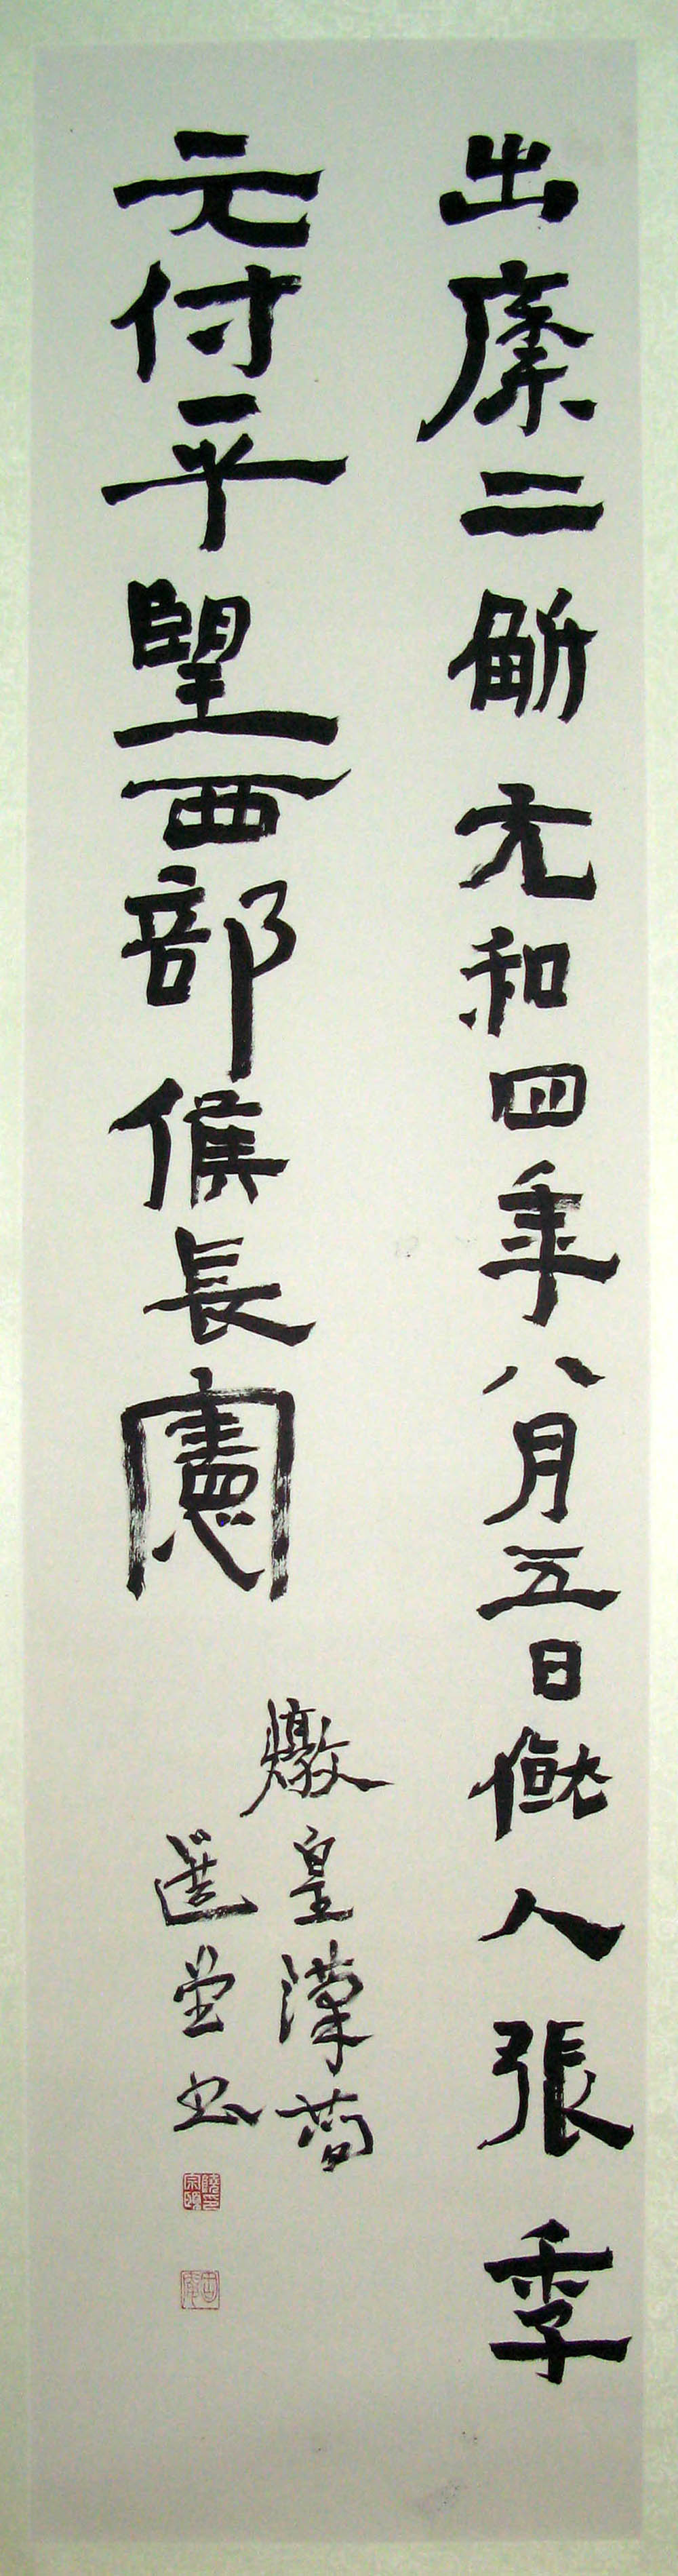 出糜二斛元和四年八月五日僦人張季
元付平望西部候長憲
燉皇漢简
選堂书